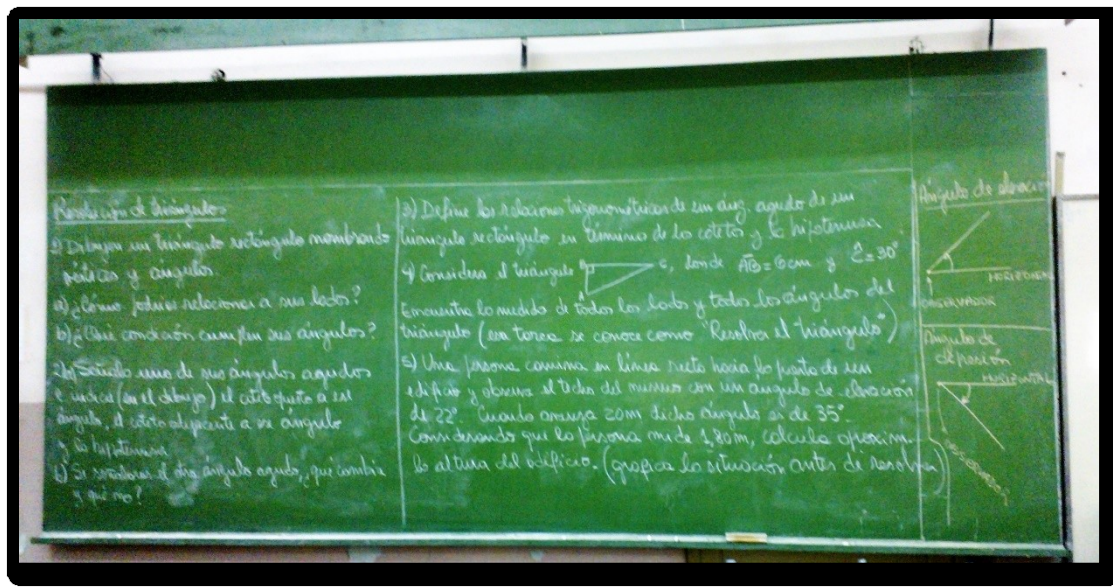 Resolución de triángulos
1) Dibujen un triángulo rectángulo nombrando
vértices y ángulos
a) ¿Cómo podrías relacionar a sus lados?
b) ¿Qué condición cumplen sus ángulos?
2) a) Señala uno de sus ángulos agudos
e indica (en el dibujo) el cateto opuesto a ese
ángulo, el cateto adyacente a ese ángulo
y la hipotenusa
b) Si consideras el otro ángulo agudo, ¿qué cambia
y qué no?
3) Define las relaciones trigonométricas de un áng. agudo de un
triángulo rectángulo en términos de los catetos y la hipotenusa
4) Considera el triángulo B C A, donde AB = 6cm y Ĉ = 30°
Encuentra la medida de todos los lados y todos los ángulos del
triángulo (esa tarea se conoce como "Resolver el triángulo")
5) Una persona camina en línea recta hacia la puerta de un
edificio y observa el techo del mismo con un ángulo de elevación
de 22°. Cuando avanza 20m dicho ángulo es de 35°.
Considerando que la persona mide 1,80m, calcula aproxim.
la altura del edificio. (grafica la situación antes de resolver)
Ángulo de elevación
HORIZONTAL
OBSERVADOR
Ángulo de
depresión
HORIZONTAL